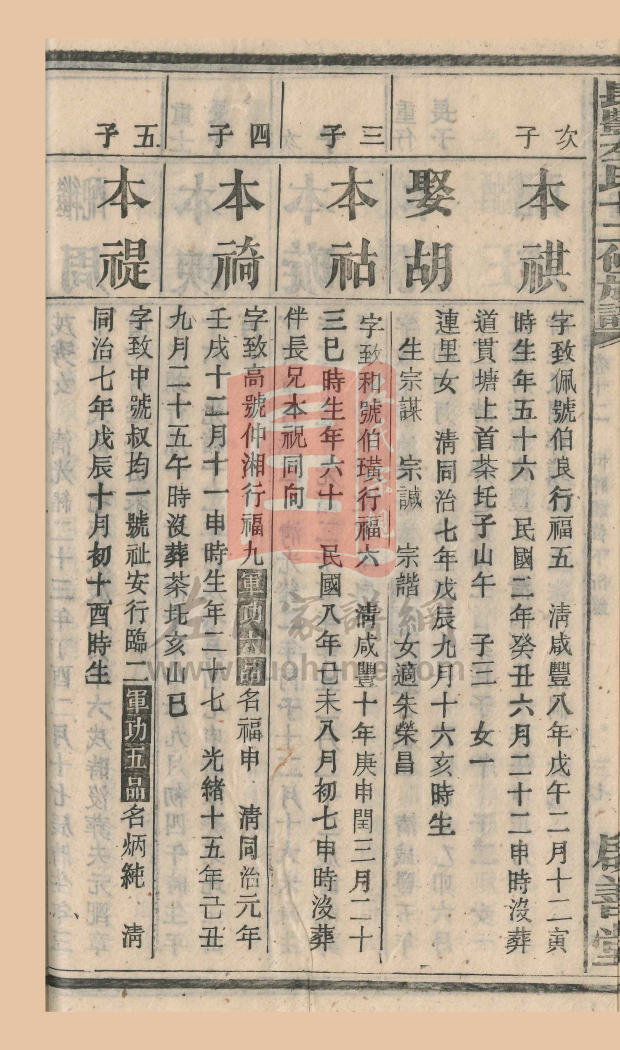 次子
本祺
字致佩號伯良行福五　淸咸豐八年戊午二月十二寅
時生年五十六　民國二年癸丑六月二十二申時沒葬
道貫塘上首茶圫子山午　子三　女一
娶胡
連里女　淸同治七年戊辰九月十六亥時生
生宗謀　宗誠　宗諧　女適朱榮昌
三子
本祜
字致和號伯璜行福六　淸咸豐十年庚申閏三月二十
三巳時生年六十　民國八年己未八月初七申時沒葬
伴長兄本祝同向
四子
本䄎
字致高號仲湘行福九軍功六品名福申　淸同治元年
壬戌十二月十一申時生年二十七　光緒十五年己丑
九月二十五午時沒葬茶圫亥山巳
五子
本禔
字致中號叔均一號祉安行臨二軍功五品名炳純　淸
同治七年戊辰十月初十酉時生
www.zuohome.com